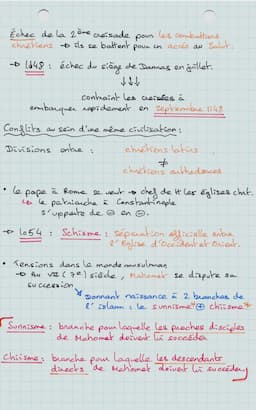 Échec de la 2ème croisade pour les combattants
chrétiens → ils se battent pour un accès au Salut.
→ 1148 : échec du siège de Damas en juillet.
↓↓↓
contraint les croisés à
embarquer rapidement en septembre 1148
Conflits au sein d'une même civilisation :
Divisions entre : chrétiens latins
≠
chrétiens orthodoxes
• le pape à Rome se veut → chef de tt les églises chrét.
↳ le patriarche à Constantinople
s'oppose de ⊕ en ⊕.
→ 1054 : Schisme : séparation officielle entre
l'Eglise d'Occident et Orient.
• Tensions dans le monde musulman
→ Au VII (7e) siècle, Mahomet se dispute sa
succession
donnant naissance à 2 branches de
l'islam : le sunnisme* ⊕ chiisme*
Sunnisme : branche pour laquelle les proches disciples
de Mahomet doivent lui succéder
Chiisme : branche pour laquelle les descendants
directs de Mahomet doivent lui succéder